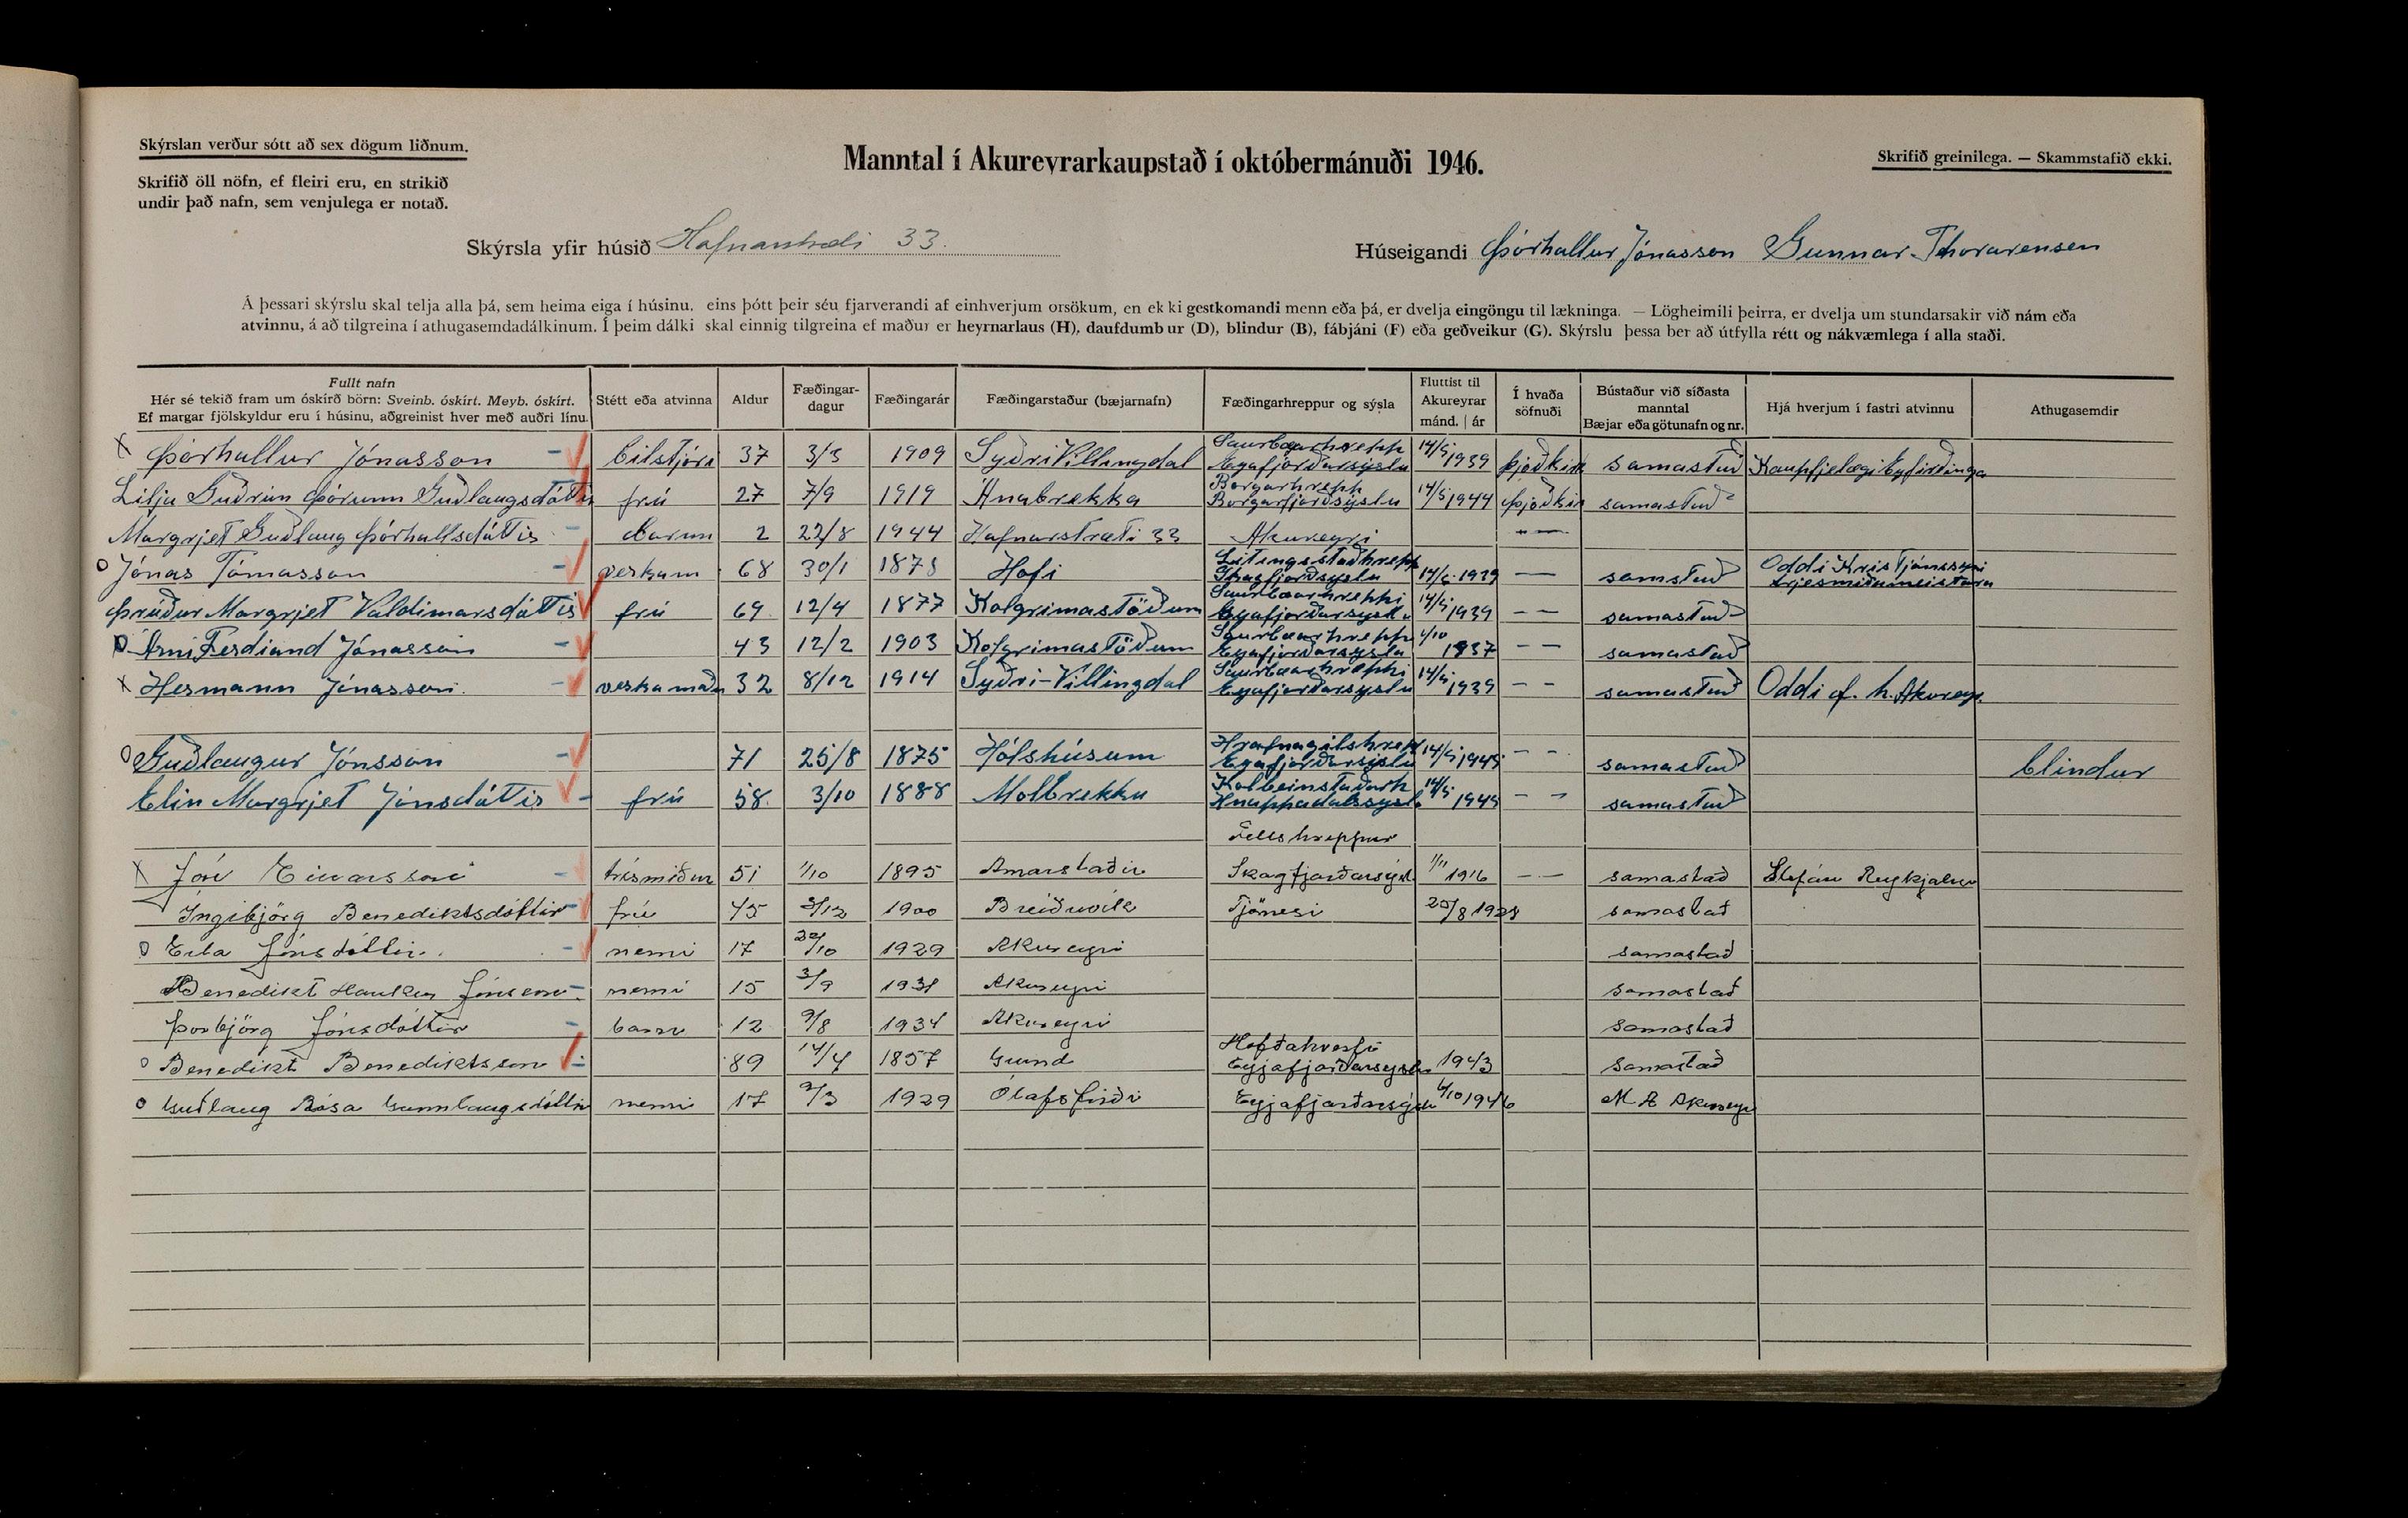 Skýrslan verður sótt að sex dögum liðnum.
Skrifið öll nöfn, ef fleiri eru, en strikið
undir það nafn, sem venjulega er notað.
Manntal í Akureyrarkaupstað í októbermánuði 1946.
Skrifið greinilega. — Skammstafið ekki.
Skýrsla yfir húsið Hafnarstræti 33.
Húseigandi Þórhallur Jónasson Gunnar Thorarensen
Á þessari skýrslu skal telja alla þá, sem heima eiga í húsinu, eins þótt þeir séu fjarverandi af einhverjum orsökum, en ekki gestkomandi menn eða þá, er dvelja eingöngu til lækninga. — Lögheimili þeirra, er dvelja um stundarsakir við nám eða
atvinnu, á að tilgreina í athugasemdadálkinum. Í þeim dálki skal einnig tilgreina ef maður er heyrnarlaus (H), daufdumbur (D), blindur (B), fábjáni (F) eða geðveikur (G). Skýrslu þessa ber að útfylla rétt og nákvæmlega í alla staði.
Fullt nafn Hér sé tekið fram um óskírð börn: Sveinb. óskírt. Meyb. óskírt. Ef margar fjölskyldur eru í húsinu, aðgreinist hver með auðri línu. Stétt eða atvinna Aldur Fæðingar-dagur Fæðingarár Fæðingarstaður (bæjarnafn) Fæðingarhreppur og sýsla Fluttist til Akureyrar mánd. | ár Í hvaða söfnuði Bústaður við síðasta manntal Bæjar eða götunafn og nr. Hjá hverjum í fastri atvinnu Athugasemdir
x Þórhallur Jónasson bílstjóri 37 3/3 1909 Syðri Villingdal Saurbæarhrepp Eyafjörðarsyslu 14/5 1939 þjóðkirk samastað Kaupfjelægi Eyfirðinga
Lilja Guðrún Þórunn Guðlaugsdóttir frú 27 7/9 1919 Ánabrekka Borgarhrepp Borgarfjarðsyslu 14/5 1944 þjóðkir samastað
Margrjet Guðlaug Þórhallsdóttir barn 2 22/8 1944 Hafnarstræti 33 Akureyri —
o Jónas Tómasson verkam 68 30/1 1878 Hofi Litingsstaðhrepp Skagfjorðsyslu 14/5 1939 — samstað Oddi Kristjánssyni trjesmiðameistara
Þrúður Margrjet Valdimarsdóttir frú 69 12/4 1877 Kolgrimastöðum Saurbæarhreppi Eyafjorðarsyslu 14/5 1939 — — samastað
o Árni Ferdiand Jónasson 43 12/2 1903 Kolgrimastöðum Saurbæarhrepp Eyafjorðarsyslu 1/10 1937 — — samastað
x Hermann Jónasson verkamaðu 32 8/12 1914 Syðri-Villingdal Saurbæarhreppi Eyafjorðarsyslu 14/5 1939 — — samastað Oddi
o Guðlaugur Jónsson 71 25/8 1875 Hólshúsum Hrafnagilshrep Eyafjorðarsyslu 14/5 1945 — — samastað blindur
Elin Margrjet Jónsdóttir frú 58 3/10 1888 Molbrekku Kolbeinstaðarh Hnappadalssysl 14/5 1945 — — samastað
x Jón Einarsson trésmiður 51 1/10 1895 Arnarstaðir Fellshreppur Skagfjarðarsýsl 1/11 1916 — — samastað Stefán Reykjalín
Ingibjörg Benediktsdóttir frú 45 3/12 1900 Breiðuvík Tjörnesi 25/8 1928 samastað
o Erla Jónsdóttir nemi 17 22/10 1929 Akureyri samastað
Benedikt Haukur Jónsson nemi 15 3/9 1931 Akureyri samastað
Þorbjörg Jónsdóttir barn 12 9/8 1934 Akureyri samastað
o Benedikt Benediktsson 89 14/4 1857 Grund Höfðahverfi Eyjafjarðarsýslu 1943 samastað
o Guðlaug Rósa Gunnlaugsdóttir nemi 17 9/3 1929 Ólafsfirði Eyjafjarðarsýslu 6/10 1946 M A Akureyri